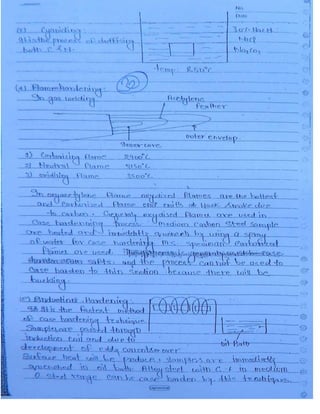 No.
Date
(c) Cyaniding:
It is the process of diffusing
both C & N.
30% NaCN
NaCl
Na2CO3
temp: 850°C
(d) Flame hardening:
In gas welding.
Acetylene
Feather
outer envelop.
Inner core
1) Carburising flame
2) Neutral flame
3) oxidising flame 3500°C
In oxyacetylene flame oxydised flames are the hottest
and carburised flame emit smoke due
to carbon. Generally oxydised flames are used in
case hardening process. Medium carbon steel sample
are heated and immediately quenched by using a spray
of water for case hardening M.S. specimen carburised
flames are used.
and the process cannot be used to
case harden to thin section because there will be
buckling.
(e) Induction Hardening:
It is the fastest method
of case hardening technique.
Samples are passed through
induction coil and due to
development of eddy current over
surface heat will be produce, samples are immediately
quenched in oil bath. Alloy steel with C & in medium
C steel range can be case harden by this technique.
oil bath